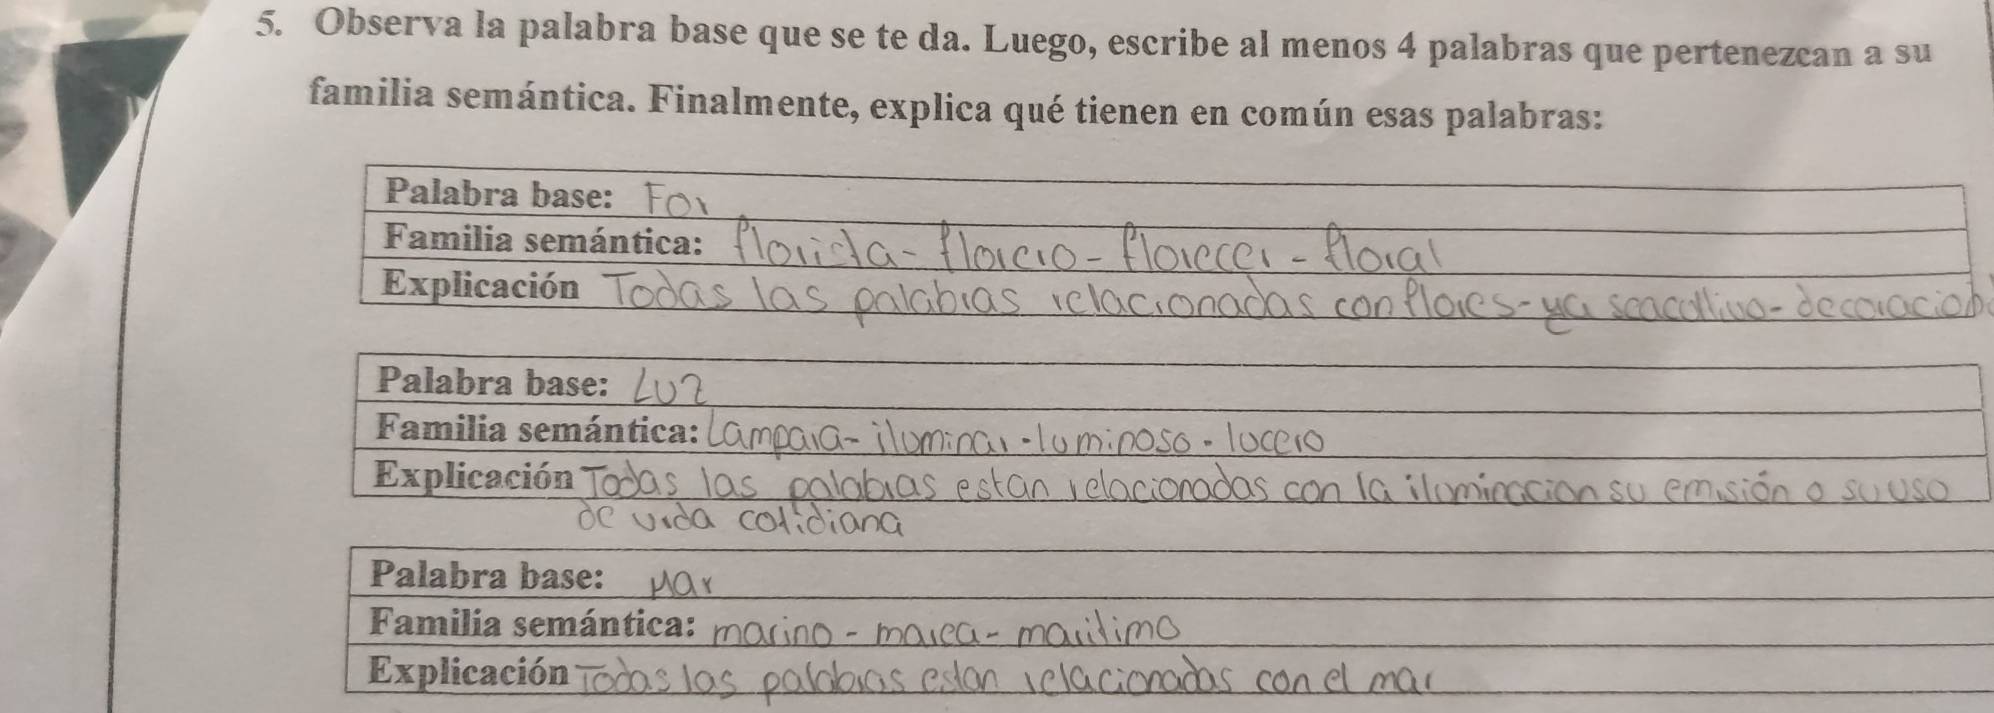 5. Observa la palabra base que se te da. Luego, escribe al menos 4 palabras que pertenezcan a su
familia semántica. Finalmente, explica qué tienen en común esas palabras:
Palabra base: For
Familia semántica: florista - florero - florecer - floral
Explicación Todas las palabras relacionadas con flores - ya sea cultivo - decoracion
Palabra base: Luz
Familia semántica: Lampara - iluminar - luminoso - lucero
Explicación Todas las palabras estan relacionadas con la iluminacion su emisión o su uso
de vida cotidiana
Palabra base: Mar
Familia semántica: marino - marea - maritimo
Explicación Todas las palabras estan relacionadas con el mar